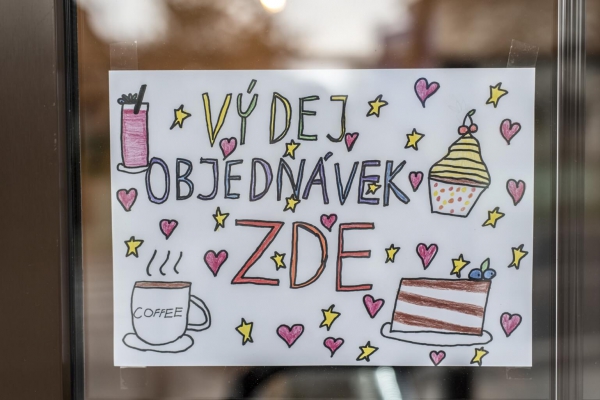 VÝDEJ
OBJEDNÁVEK
ZDE
COFFEE